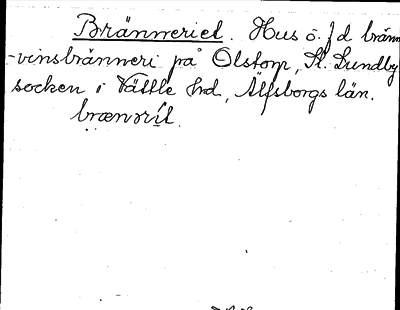 Bränneriet. Hus o. f d bränn
-vinsbränneri på Olstorp, St. Lundby
socken i Vättle hd, Älfsborgs län.